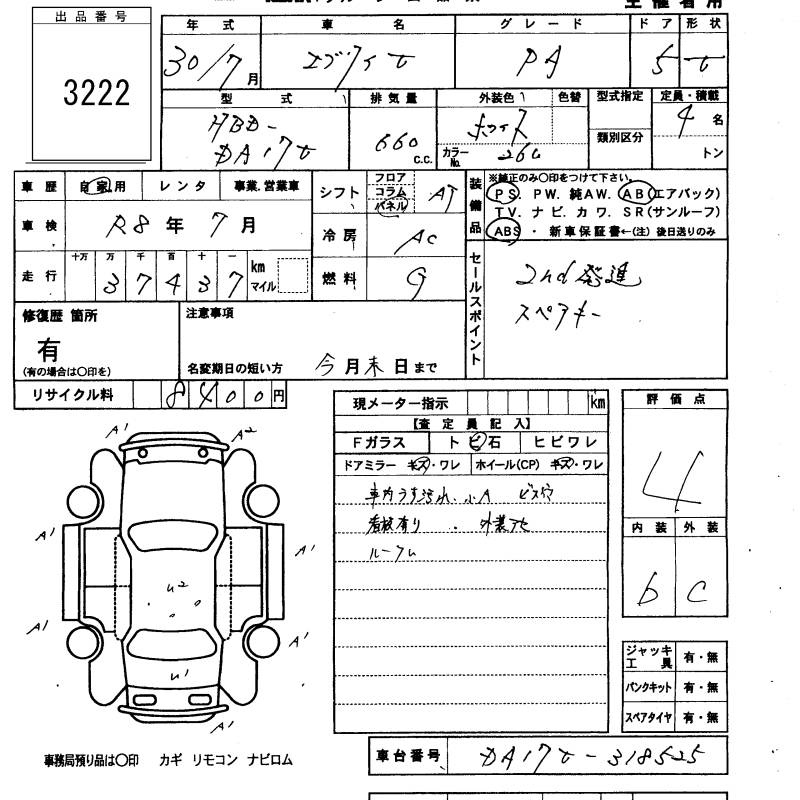 出品番号
3222
年式 車名 グレード ドア 形状
30/7月 エブリイV PA 5 V
型式 排気量 外装色 色替 型式指定 定員・積載
HBD-DA17V 660 c.c. ホワイト 類別区分 4名
カラーNo. 26U トン
車歴 自家用 レンタ 事業.営業車
車検 R8年 7月
走行 十万 万 千 百 十 一
3 7 4 3 7 km マイル
シフト フロア コラム パネル AT
冷房 AC
燃料 G
装備品
※純正のみ〇印をつけて下さい。
PS. PW. 純AW. AB(エアバック)
TV. ナビ. カワ. SR(サンルーフ)
ABS・新車保証書←(注) 後日送りのみ
セールスポイント
2nd発進
スペアキー
修復歴 箇所
有
(有の場合は〇印を)
注意事項
名変期日の短い方 今月末日まで
リサイクル料 8400円
現メーター指示 km
【査定員記入】
Fガラス トビ石 ヒビワレ
ドアミラー キズ・ワレ ホイール(CP) キズ・ワレ
車内うす汚れ、小A ビス穴
看板有り
ルーフム
評価点
4
内装 外装
b C
A1 A2
A1 A1
U2
A1 A1
U1
A1
ジャッキ工具 有・無
パンクキット 有・無
スペアタイヤ 有・無
事務局預り品は〇印 カギ リモコン ナビロム
車台番号 DA17V-318525